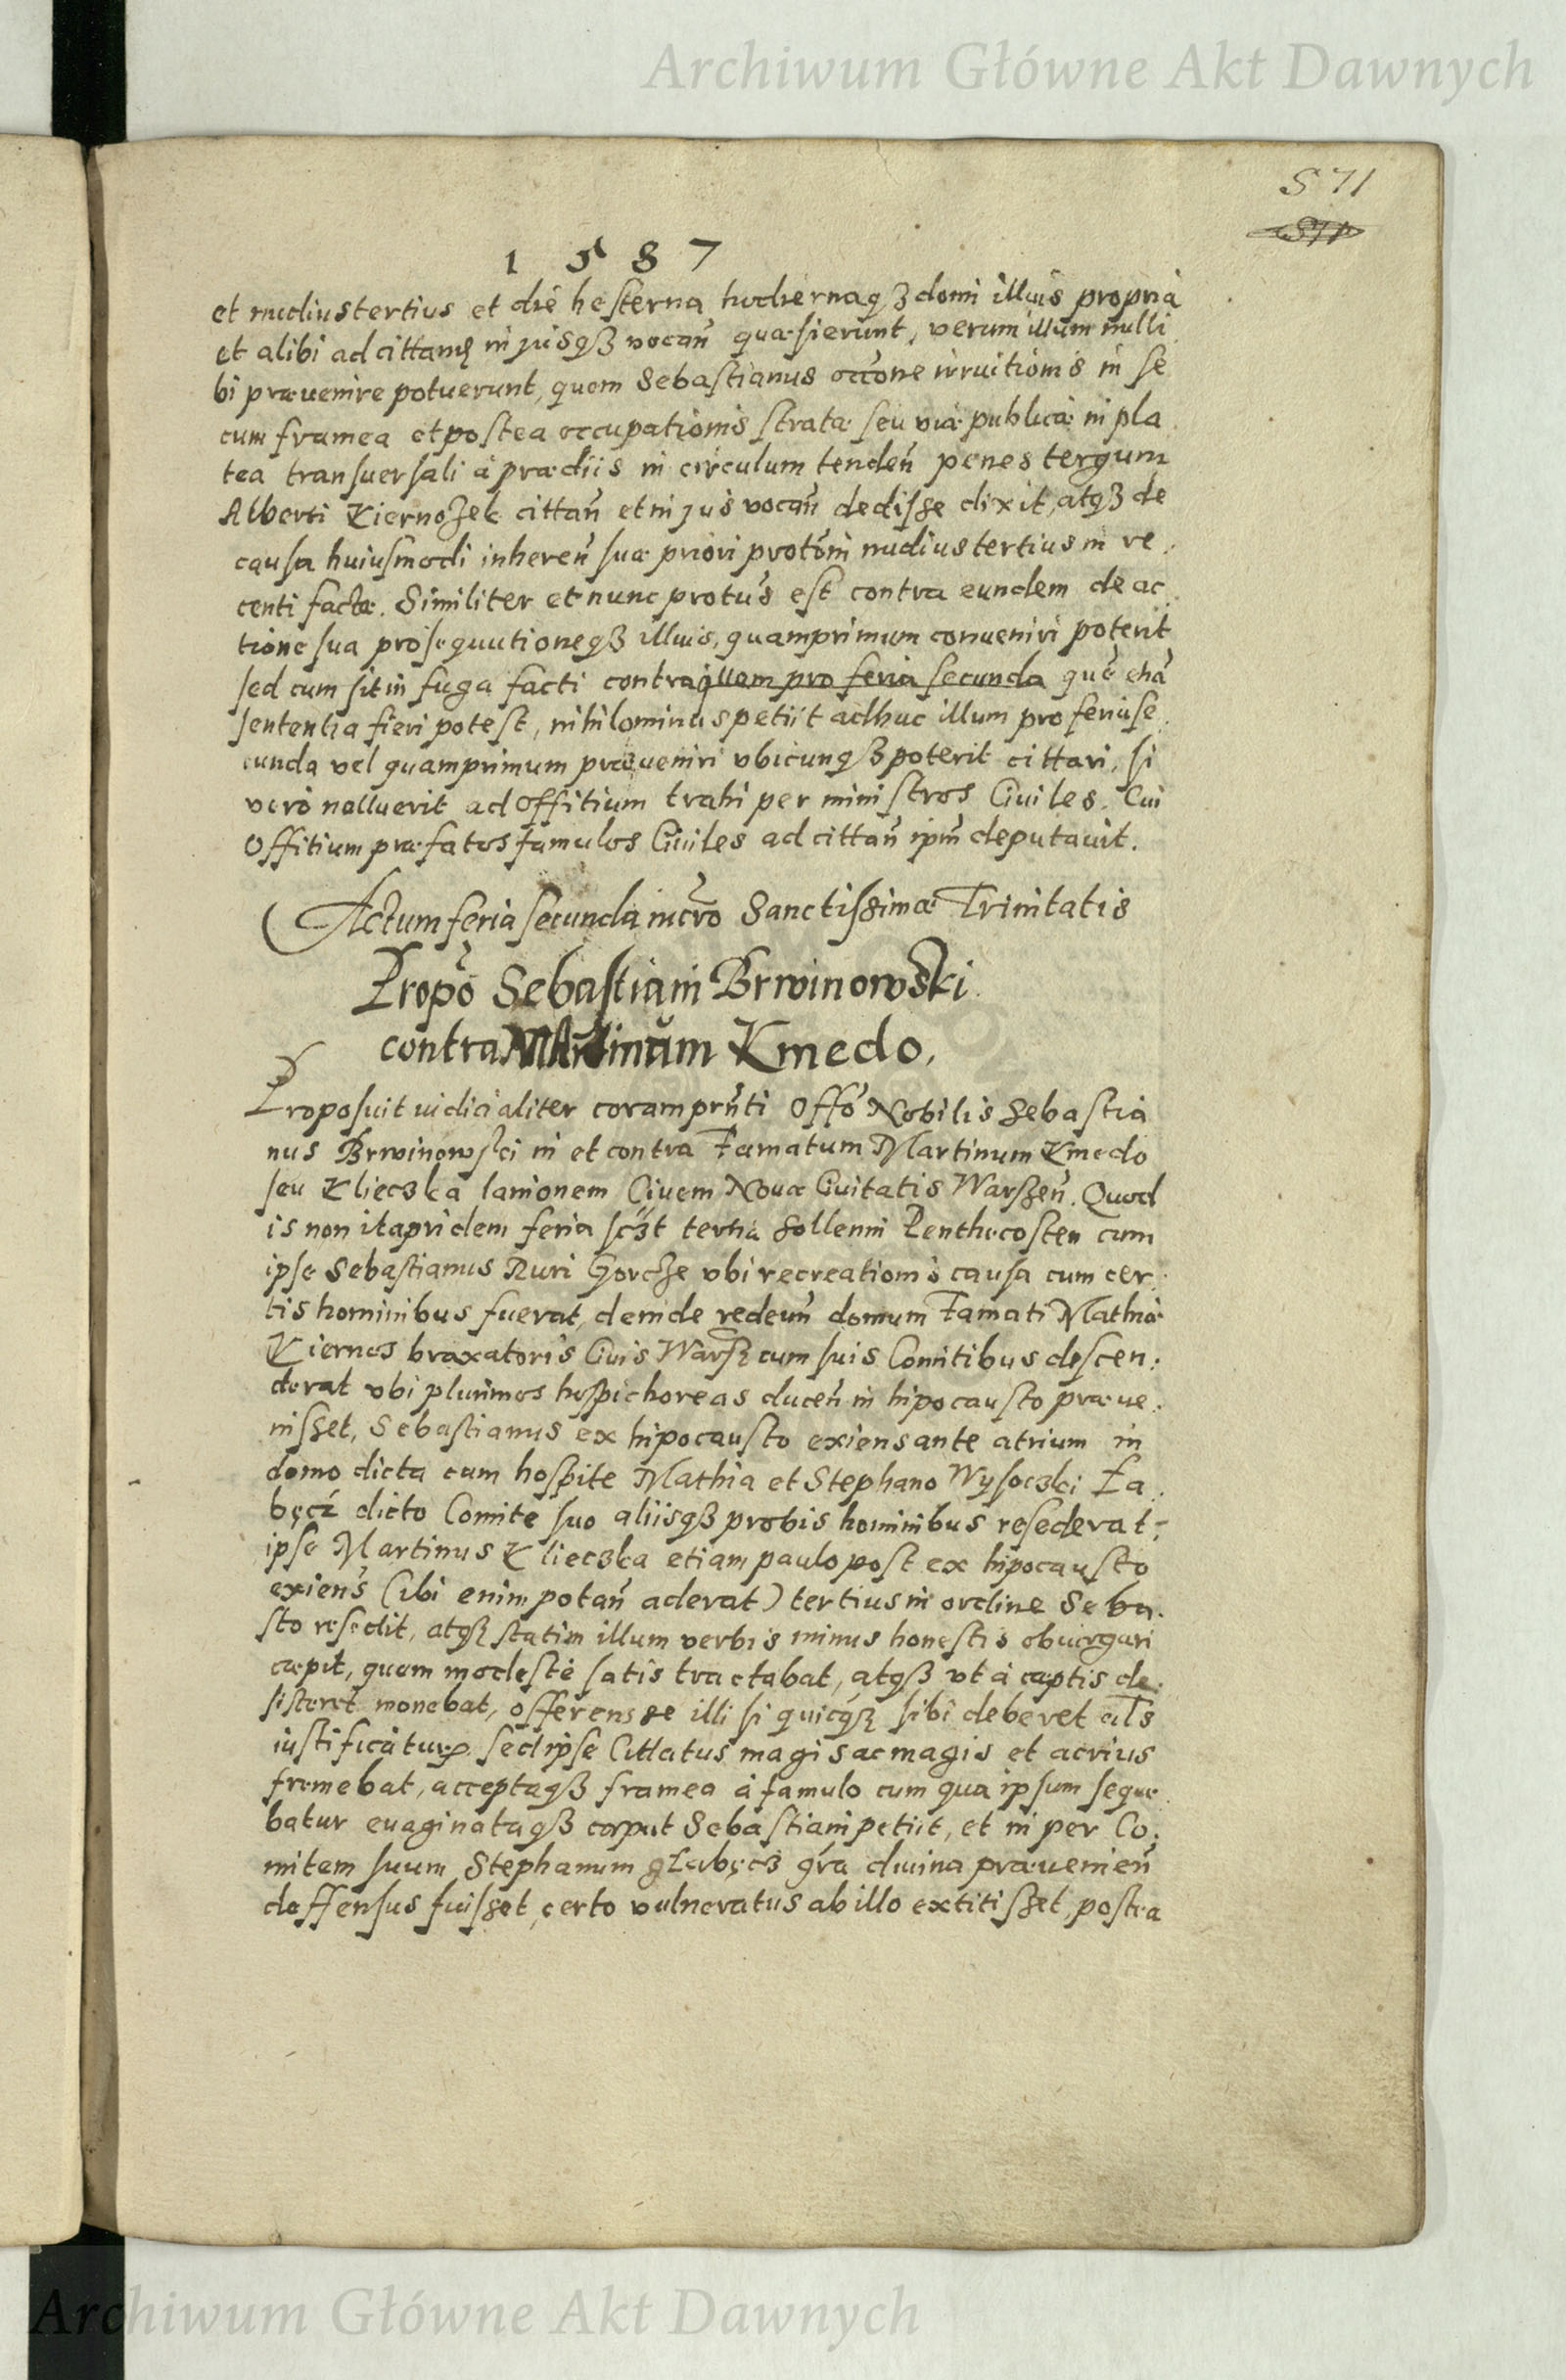 Archiwum Główne Akt Dawnych
571
1587
et nudiustertius et die hesterna hodiernaqȝ domi illius propria
et alibi ad cittanđ in jusqȝ vocan̄ quæsierunt, verum illum nulli
bi prævenire potuerunt, quem Sebastianus occōne irruitionis in se
cum framea et postea occupationis stratæ seu viæ publicæ in pla
tea transversali à prædiis in circulum tenden̄ penes tergum
Alberti Kiernozek cittan̄ et in jus vocan̄ dedisse dixit, atqȝ de
causa huiusmodi inheren̄ suæ priori protōni nudiustertius in re
centi factæ. Similiter et nunc protūs est contra eundem de ac
tione sua prosequutioneqȝ illius, quamprimum conveniri poterit
sed cum sit in fuga facti contra illum pro feria secunda quē etiā
sententia fieri potest, nihilominus petiit adhuc illum pro feria se
cunda vel quamprimum præveniri vbicunqȝ poterit cittari, si
vero nolluerit ad Offitium trahi per ministros Civiles. Cui
Offitium præfatos famulos Civiles ad cittan̄ ipm̄ deputavit.
Actum feria secunda in crō Sanctissimæ Trinitatis
Propō Sebastiani Brwinowski
contra Martinum Kmedo,
Proposuit iudicialiter coram prn̄ti Offō Nobilis Sebastia
nus Brwinowski in et contra Famatum Martinum Kmedo
seu Klieczka lanionem Civem Novæ Civitatis Warszen̄. Quod
is non itapridem feria sczt tertia sollenni Penthecosten cum
ipse Sebastianus Ruri Gorcze vbi recreationis causa cum cer
tis hominibus fuerat, deinde redeun̄ domum Famati Mathiæ
Kiernos braxatoris Civis Warsz cum suis Comitibus descen:
derat vbi plurimos hospi choreas ducen̄ in hipocausto præve:
nisset, Sebastianus ex hipocausto exiens ante atrium in
domo dicta cum hospite Mathia et Stephano Wysoczki Ła
będź dicto Comite suo aliisqȝ probis hominibus resederat,
ipse Martinus Klieczka etiam paulo post ex hipocausto
exiens (ibi enim potan̄ aderat) tertius in ordine Seba.
sto resedit, atqȝ statim illum verbis minus honestis obiurgari
cæpit, quem modeste satis tractabat, atqȝ vt à cæptis de:
sisteret monebat, offerens se illi si quicqȝ sibi deberet als
iustificaturꝝ sed ipse Cittatus magis ac magis et acrius
fremebat, acceptaqȝ framea à famulo cum qua ipsum seque
batur evaginataqȝ caput Sebastiani petiit, et ni per Co:
mitem suum Stephanum Łabęcz grā divina prævenien̄
deffensus fuisset, certo vulneratus ab illo extitisset, postea
Archiwum Główne Akt Dawnych